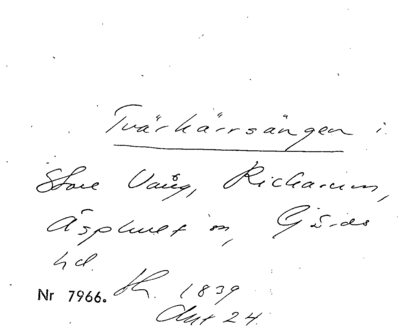 Tvärkärrsängen i
Store Vång, Rickarum,
Äsphult sn, Gärds
hd.
Nr 7966. 1839
24